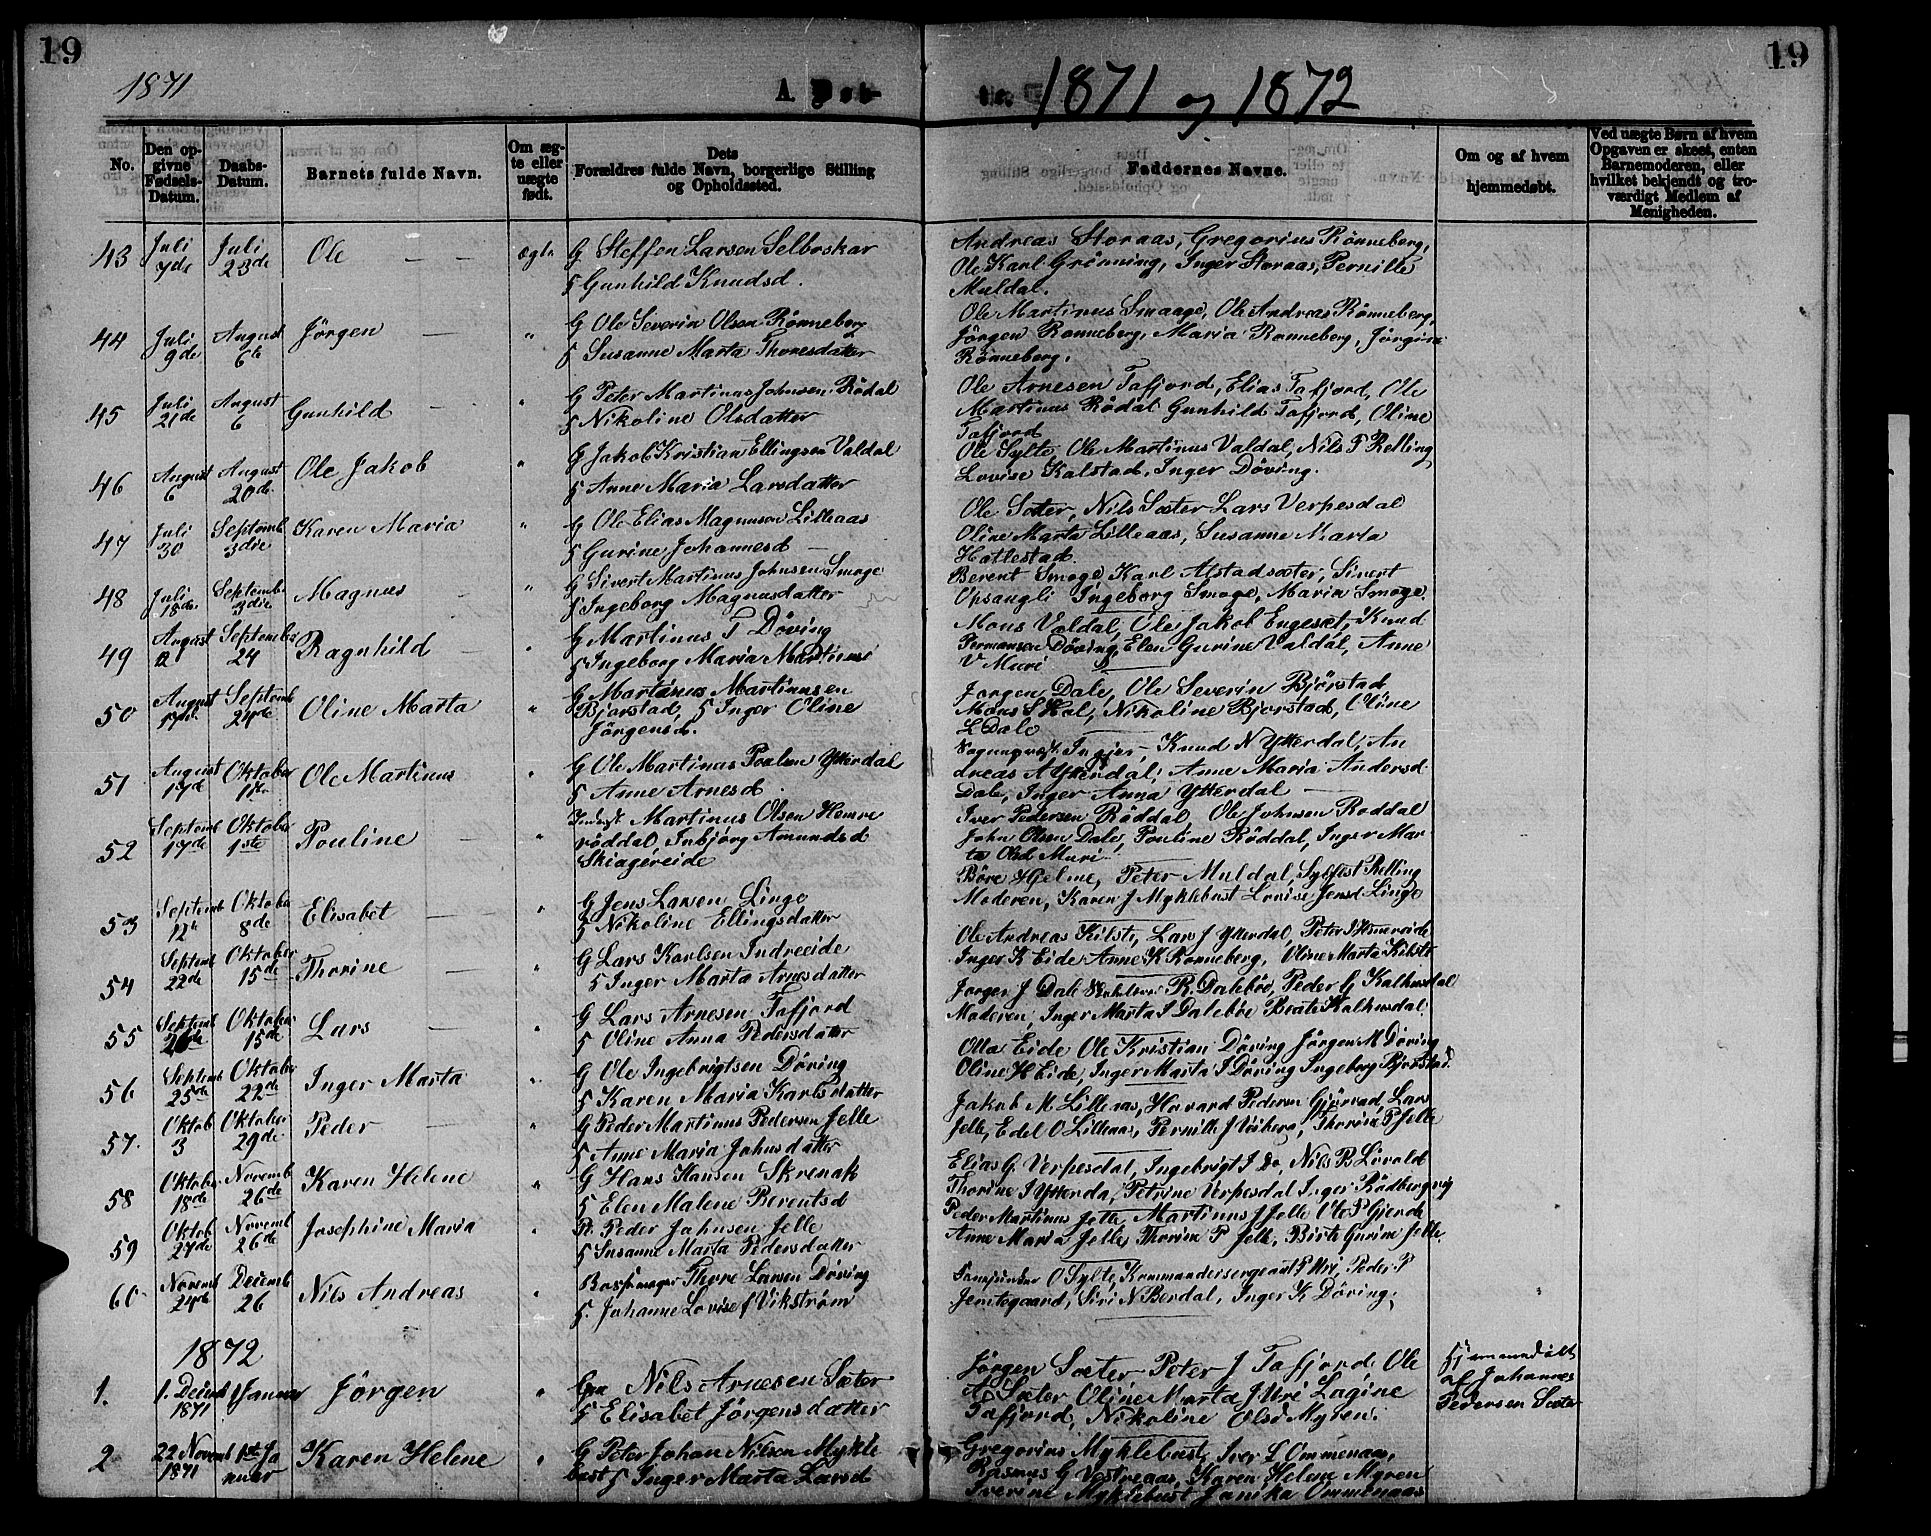 19
19
1871
A
1871 og 1872
No.
Den opgivne Fødsels-Datum.
Daabs-Datum.
Barnets fulde Navn.
Om ægte eller uægte født.
Dets Forældres fulde Navn, borgerlige Stilling og Opholdssted.
Faddernes Navne.
Om og af hvem hjemmedøbt.
Ved uægte Børn af hvem Opgaven er skeet, enten Barnemoderen, eller hvilket bekjendt og troværdigt Medlem af Menigheden.
43 Juli 7de Juli 23de Ole ægte G Steffen Larsen Selboskar
5 Gunhild Knudsd.
Andreas Storaas, Gregorius Rønneberg,
Ole Karl Grønning, Inger Storaas, Pernille
Muldal.
44 Juli 9de August 6te Jörgen " G Ole Severin Olsen Rønneberg
5 Susanne Marta Thoresdatter
Ole Martinus Smaage, Ole Andreas Rønneberg,
Jörgen Rønneberg, Maria Rønneberg, Jörgine
Rønneberg.
45 Juli 21de August 6 Gunhild " G Peter Martinus Johnsen Rödal
5 Nikoline Olsdatter
Ole Arnesen Tafjord, Elias Tafjord, Ole
Martinus Rödal Gunhild Tafjord, Oline
Tafjord
46 August 6 August 20de Ole Jakob " G Jakob Kristian Ellingsen Valdal
5 Anne Maria Larsdatter
Ole Sylte, Ole Martinus Valdal, Nils P Relling
Lovise Kalstad, Inger Döving.
47 Juli 30 Septemb 3die Karen Maria " G Ole Elias Magnusen Lilleaas
5 Gurine Johannesd
Ole Sæter, Nils Sæter Lars Verpesdal
Oline Marta Lilleaas, Susanne Marta
Hatlestad
48 Juli 18de Septembr 3die Magnus " G Sivert Martinus Johnsen Smoge
5 Ingeborg Magnusdatter
Berent Smoge, Karl Alstadsæter, Sivert
Opsaugli Ingeborg Smoge, Maria Smoge.
49 August September 24 Ragnhild " G Martinus T Döving
5 Ingeborg Maria
Mons Valdal, Ole Jakob Engeset, Knud
Döving, Elen Gurine Valdal, Anne
V Muri
50 August Septemb 24de Oline Marta " G Martinus Martinusen
Bjørstad, 5 Inger Oline
Jörgensd.
Jørgen Dale, Ole Severin Bjørstad
Mons S Hol, Nikoline Bjorstad, Oline
L Dale
51 August 17de Oktober 1ste Ole Martinus " G Ole Martinus Poulsen Ytterdal
5 Anne Arnesd.
Knud N Ytterdal, An
dreas A Ytterdal, Anne Maria Andersd
Dale, Inger Anna Ytterdal
52 Septemb 17de Oktober 1ste Pouline " Martinus Olsen Hemre
röddal, Inbjörg Amundsd
Skiagereide
Iver Pedersen Röddal, Ole Johnsen Roddal
John Olsen Dale, Pouline Röddal, Inger Mar
ta Olsd Muri
53 Septemb 12te Oktober 8de Elisabet " G Jens Larsen Linge
5 Nikoline Ellingsdatter
Böre Hjelme, Peter Muldal, Sylfest Relling
Moderen, Karen J Myklebust Lovise Jensd Linge
54 Septemb 22de Oktober 15de Thorine " G Lars Karlsen Indreeide
5 Inger Marta Arnesdatter
Ole Andreas Kilsti, Lars J Ytterdal, Peter
Inger K Eide Anne K Ronneberg, Oline Marta Kilsti
55 Septemb Oktober 15de Lars " G Lars Arnesen Tafjord
5 Oline Anna Pedersdatter
Jorgen J Dale R. Dalebø, Peder G Kalhusdal
Moderen, Inger Marta S Dalebøe Beate Kalhusdal
56 Septemb 25de Oktober 22de Inger Marta " G Ole Ingebrigtsen Döving
5 Karen Maria Karlsdatter
Olla Eide Ole Kristian Döving Jörgen M Döving
Oline H Eide, Inger Marta J Döving Ingeborg Bjørstad
57. Oktob 3 Oktober 29de Peder G Peder Martinus Pedersen Jelle
5 Anne Maria Johnsdatter
Jakob M Lilleaas, Havard Pedersen, Lars
Jelle, Edel O Lilleaas, Pernille J, Thorine P Jelle
58 Oktober 18de Novemb 26de Karen Helene " G Hans Hansen Skrenak
5 Elen Malene Berentsd
Elias G Verpesdal, Ingebrigt J Do, Nils B Lövold
Thorine J Ytterdal, Petrine Verpesdal Inger Rødbergvig
59 Oktob 27de Novemb 26de Josephine Maria " Peder Johnsen Jelle
5 Susanne Marta Pedersdatter
Peder Martinus Jelle, Martinus J Jelle Ole P Gjerde
Anne Maria Jelle, Thorine P Jelle, Birte Gurine Jelle
60. Novemb 24de Decemb 26 Nils Andreas Thore Larsen Döving
5. Johanne Lovise f Vikström
O Sylte, Kommandersergeant P Uri, Peder P
Jemtegaard, Siri N Berdal, Inger K Döving.
1872
1. 1. Decemb 1871 1 Januar Jörgen " Nils Arnesen Sæter
5 Elisabet Jörgensdatter
Jörgen Sæter Peter J Tafjord Ole
A Sæter Oline Marta J Uri Lagine
Tafjord, Nikoline Olsd Myren.
Hjemmedöbt
af Johannes
Pedersen Sæter
2 22 Novemb 1871 1ste Januar Karen Helene " G Peter Johan Nilsen Mykle
bust 5 Inger Marta Larsd
Gregorius Myklebust, Iver L Ommenaas,
Rasmus G Vestreaas, Karen Helene Myren
Iverine Myklebust Janika Ommenaas